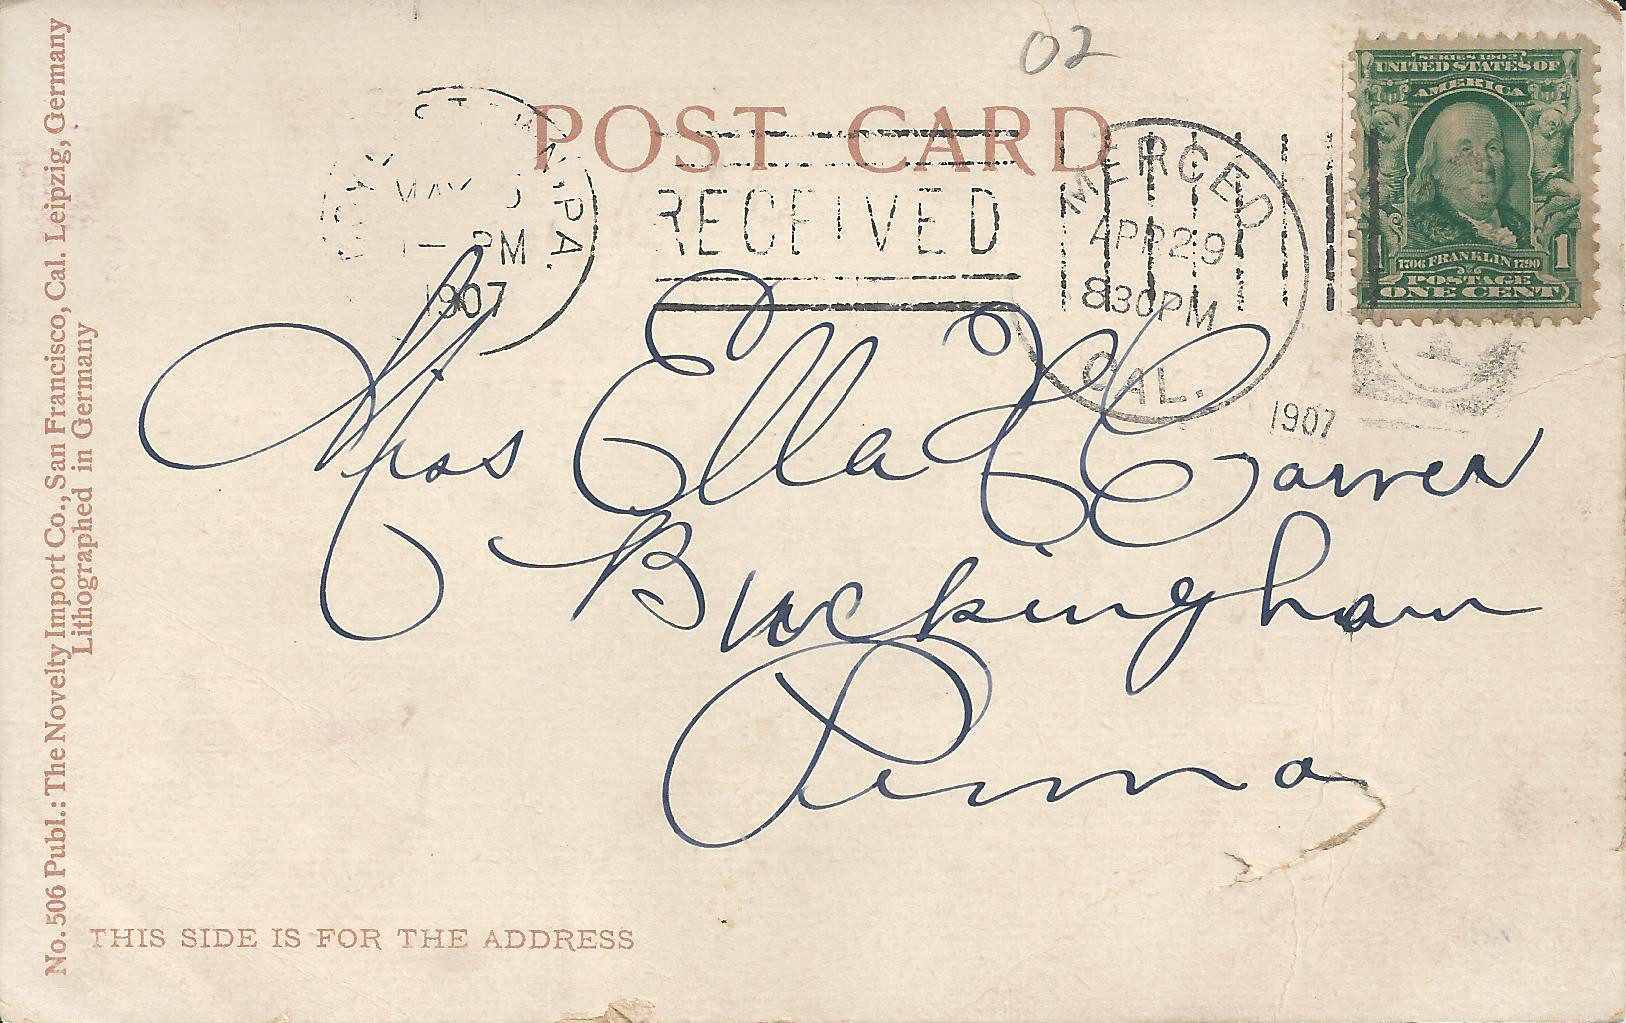 02
POST CARD
SERIES 1902
UNITED STATES OF
AMERICA
1706 FRANKLIN 1790
1
POSTAGE
ONE CENT
MERCED
APR 29
830PM
CAL.
1907
RECEIVED
PA.
MAY
PM
1907
Miss Ella H Carver
Buckingham
Penna
THIS SIDE IS FOR THE ADDRESS
No. 506 Publ.: The Novelty Import Co., San Francisco, Cal. Leipzig, Germany
Lithographed in Germany